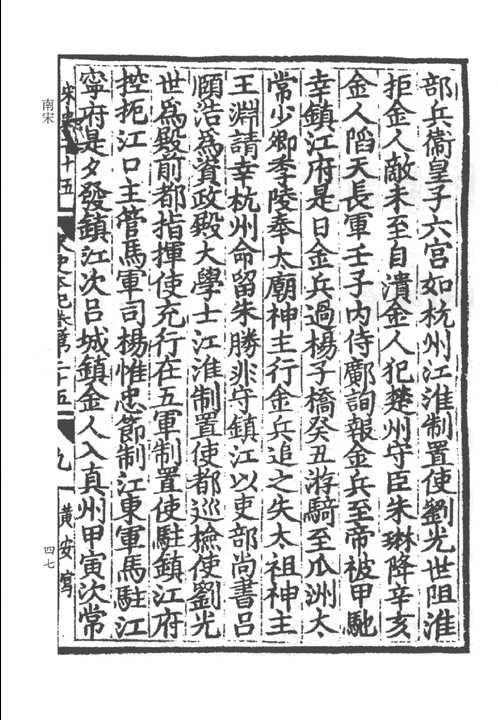 部兵衞皇子六宮如杭州江淮制置使劉光世阻淮
拒金人敵未至自潰金人犯楚州守臣朱琳降辛亥
金人陷天長軍壬子内侍鄺詢報金兵至帝被甲馳
幸鎮江府是日金兵過楊子橋癸丑游騎至瓜洲太
常少卿季陵奉太廟神主行金兵追之失太祖神主
王淵請幸杭州命留朱勝非守鎮江以吏部尚書呂
頤浩爲資政殿大學士江淮制置使都巡檢使劉光
世爲殿前都指揮使充行在五軍制置使駐鎮江府
控扼江口主管馬軍司楊惟忠節制江東軍馬駐江
寧府是夕發鎮江次呂城鎮金人入真州甲寅次常
九
黄安寫
南宋
四七